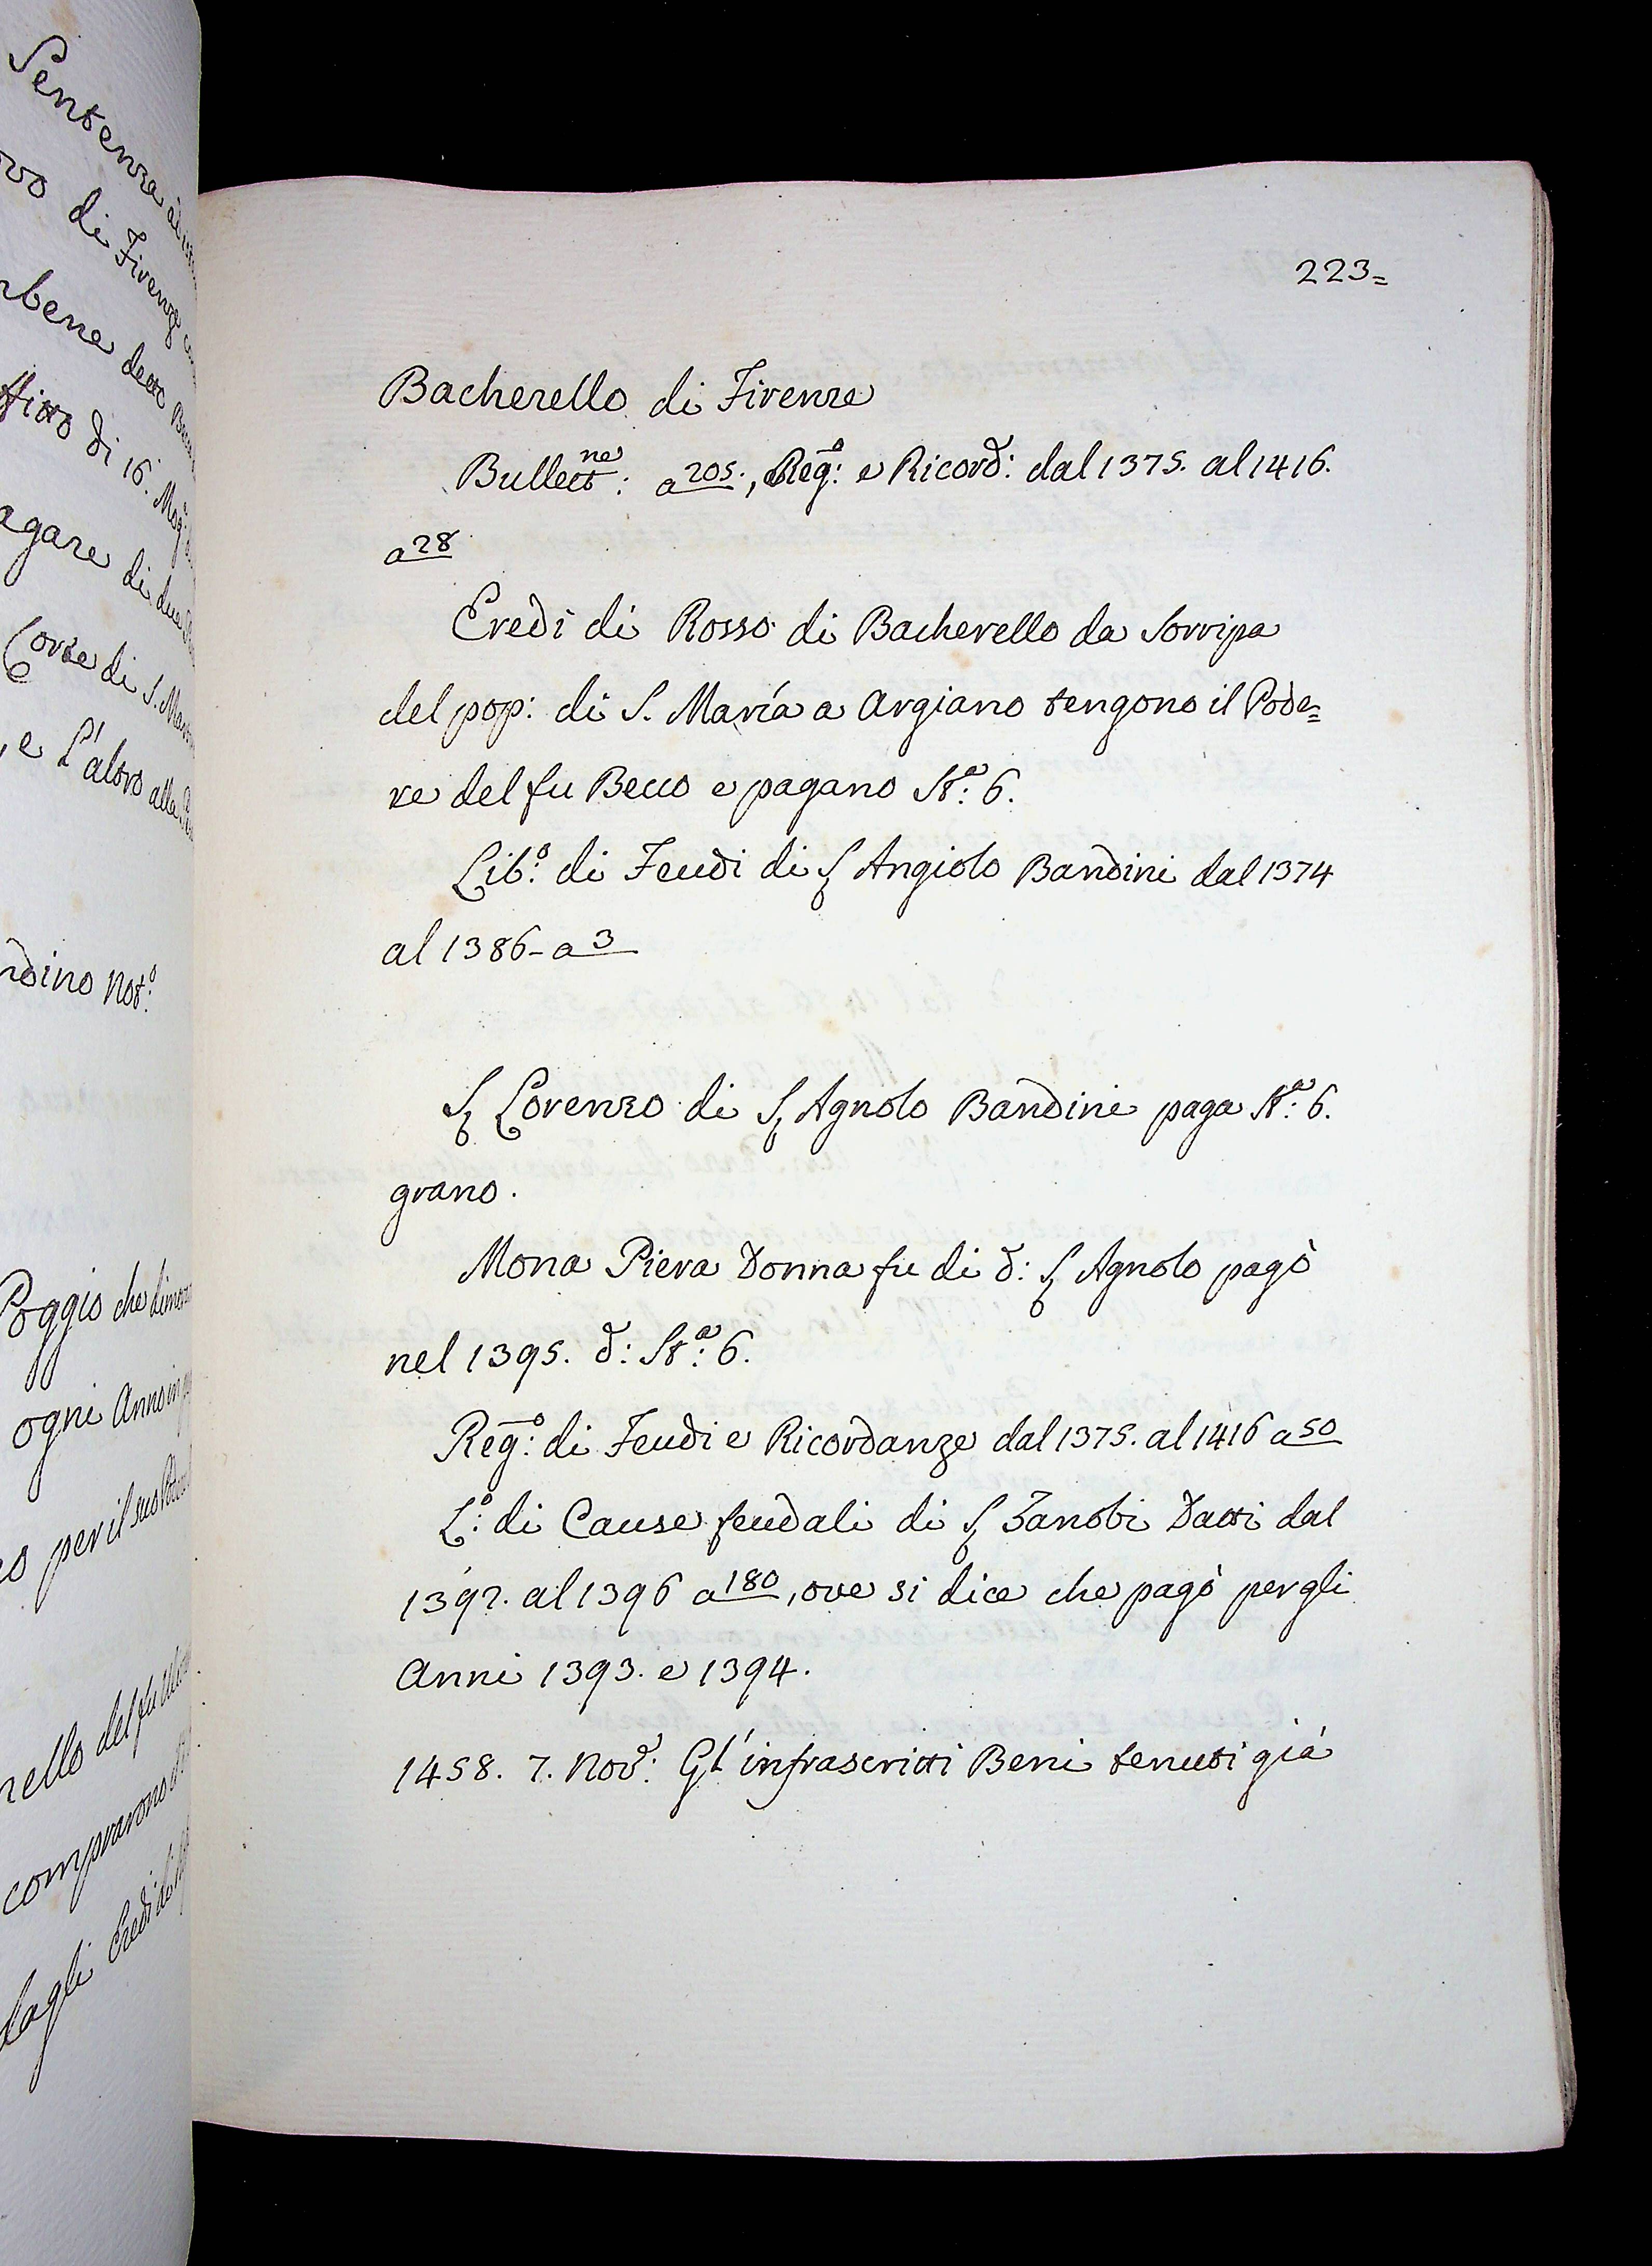 Sentenza
ovo di Firenze
bene detto
fitto di 16. Mag:
agare di due
Corte di S.
, e L'altro alla
ndino Not:º
Poggio che dimora
ogni Anno in
o per il suo
nello del fu
comprarono
dagli Eredi di
223=
Bacherello di Firenze
Bullettne: a 205., Regº: e Ricord: dal 1375. al 1416.
a 28
Eredi di Rosso di Bacherello da Sorripa
del pop: di S. María a Argiano tengono il Pode=
re del fu Becco e pagano Stª: 6.
Libº: di Feudi di S Angiolo Bandini dal 1374
al 1386 - a 3
S Lorenzo di S Agnolo Bandini paga Stª: 6.
grano.
Mona Piera Donna fu di d: S Agnolo pagò
nel 1395. d: Stª: 6.
Regº: di Feudi e Ricordanze dal 1375. al 1416 a 50
Lº: di Cause feudali di S Zanobi Datti dal
1392. al 1396 a 180, ove si dice che pagò per gli
Anni 1393. e 1394.
1458. 7. Nov: Gl'infrascritti Beni tenuti già